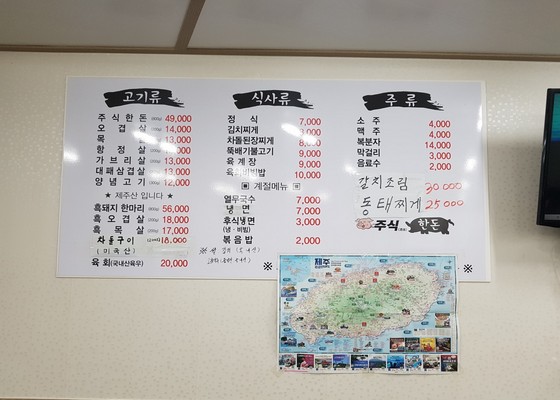 고기류
주식한돈 49,000
오겹살 14,000
목살 13,000
항정살 13,000
가브리살 13,000
대패삼겹살 13,000
양념고기 12,000
※ 제주산 입니다 ※
흑돼지 한마리 56,000
흑오겹살 18,000
흑목살 17,000
차돌구이 18,000
(미국산)
육회(국내산육우) 20,000
식사류
정식 7,000
김치찌개 8,000
차돌된장찌개 8,000
뚝배기불고기 9,000
육계장 9,000
육회비빔밥 10,000
계절메뉴
열무국수 7,000
냉면 7,000
후식냉면 3,000
(냉·비빔)
볶음밥 2,000
주류
소주 4,000
맥주 4,000
복분자 14,000
막걸리 3,000
음료수 2,000
갈치조림 30.000
동태찌개 25000
주식 한돈
제주